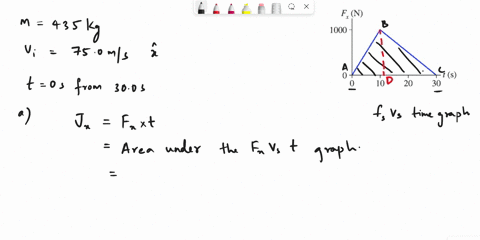 m = 435 kg
vi = 75.0 m/s x̂
t = 0s from 30.0s
a) Jx = Fx × t
= Area under the Fx Vs t graph.
=
Fx (N)
B
1000
A
0
0 10 20 30
D
C
t (s)
fx Vs time graph